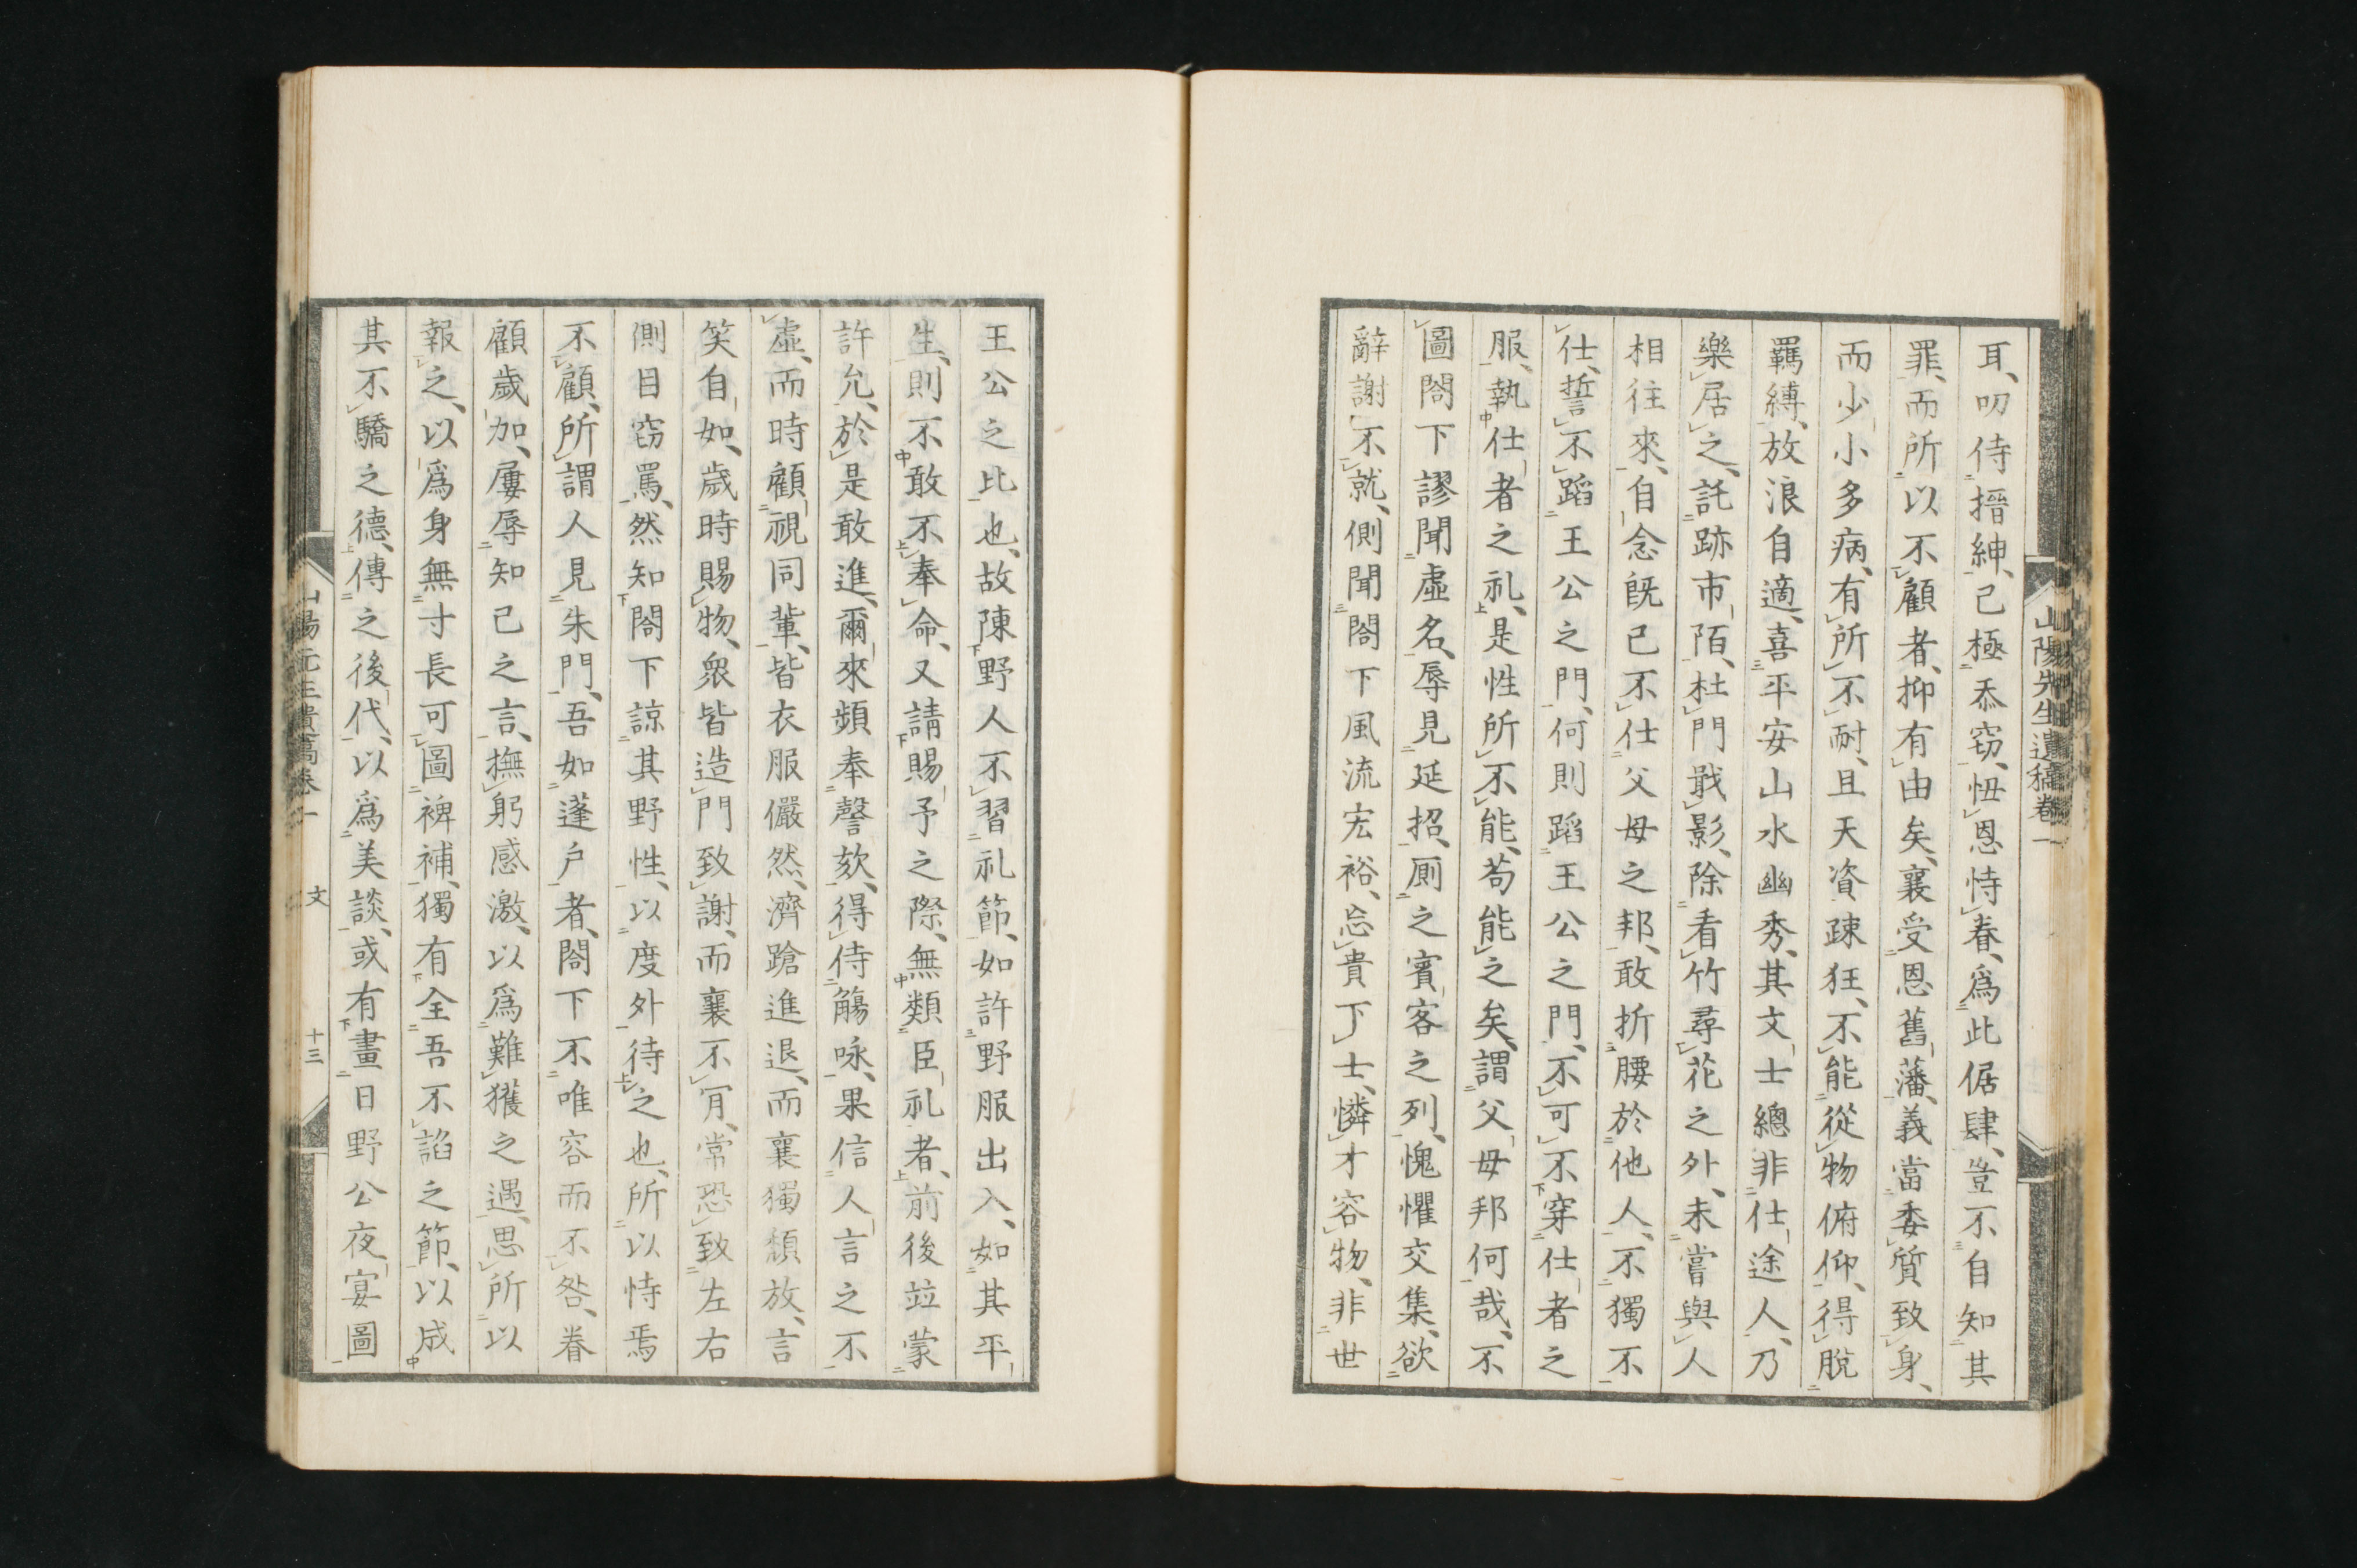 耳、叨侍搢紳、已極忝窃、忸恩恃眷、爲此倨肆、豈不自知其
罪、而所以不顧者、抑有由矣、襄受恩舊藩、義當委質致身、
而少小多病、有所不耐、且天資疎狂、不能從物俯仰、得脫
羈縛、放浪自適、喜平安山水幽秀、其文士總非仕途人、乃
樂居之、託跡市陌、杜門戢影、除看竹尋花之外、未嘗與人
相往來、自念既已不仕父母之邦、敢折腰於他人、不獨不
仕、誓不蹈王公之門、何則蹈王公之門、不可不穿仕者之
服、執仕者之礼、是性所不能、苟能之矣、謂父母邦何哉、不
圖閤下謬聞虛名、辱見延招、厠之賓客之列、愧懼交集、欲
辭謝不就、側聞閤下風流宏裕、忘貴下士、憐才容物、非世
山陽先生遺稿卷一
王公之比也、故陳野人不習礼節、如許野服出入、如其平
生、則不敢不奉命、又請賜予之際、無類臣礼者、前後竝蒙
許允、於是敢進、爾來頻奉謦欬、得侍觴咏、果信人言之不
虛、而時顧視同輩、皆衣服儼然、濟蹌進退、而襄獨頽放、言
笑自如、歲時賜物、衆皆造門致謝、而襄不肎、常恐致左右
側目窃罵、然知閤下諒其野性、以度外待之也、所以恃焉
不顧、所謂人見朱門、吾如蓬户者、閤下不唯容而不咎、眷
顧歲加、屢辱知己之言、撫躬感激、以爲難獲之遇、思所以
報之、以爲身無寸長可圖裨補、獨有全吾不諂之節、以成
其不驕之德、傳之後代、以爲美談、或有畫日野公夜宴圖
山陽先生遺稿卷一 文 十三